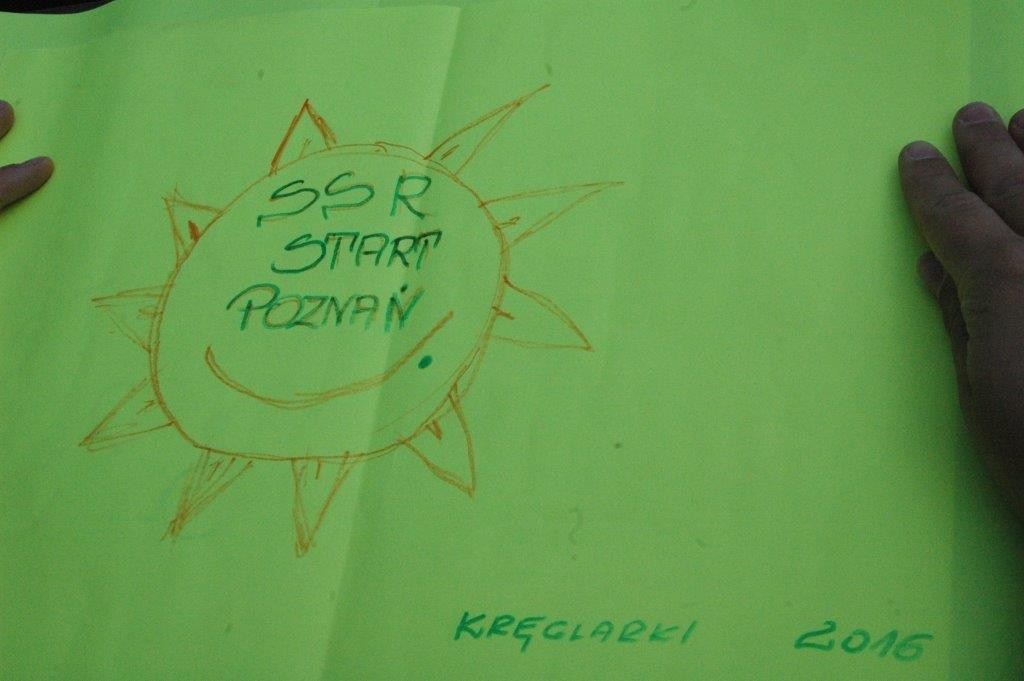 SSR
START
POZNAŃ
KRĘGLARKI 2016